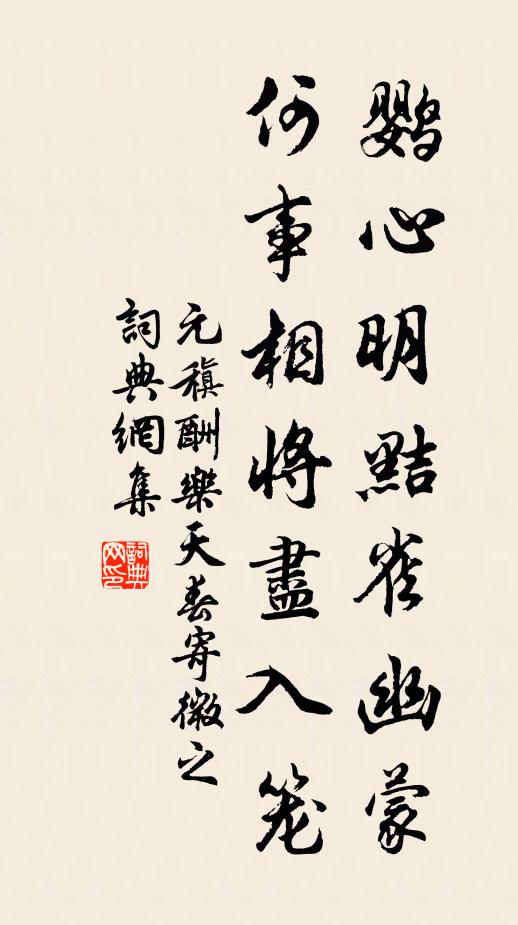 鸚心明黠雀幽蒙
何事相將盡入笼
元稹酬樂天春寄微之
詞典網集
詞典网印